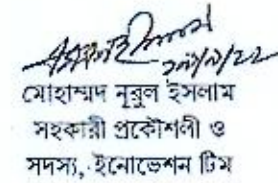 মোহাম্মদ নূরুল ইসলাম
সহকারী প্রকৌশলী ও
সদস্য, ইনোভেশন টিম